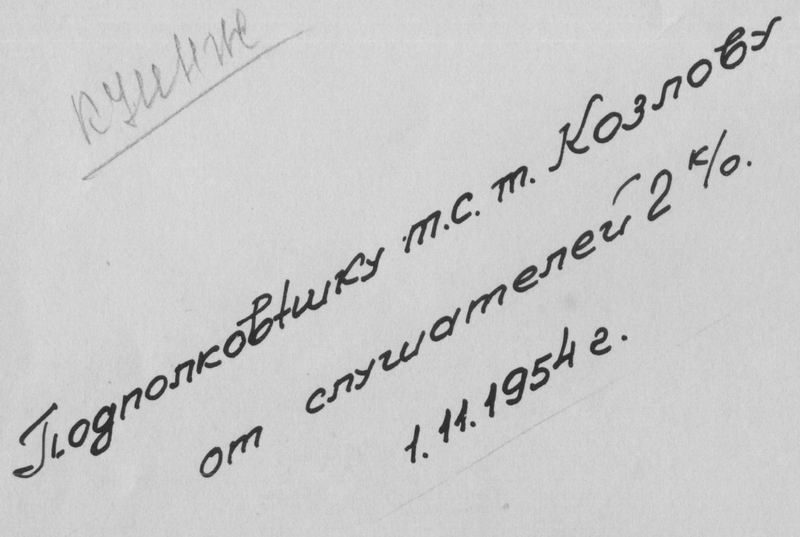 Подполковнику т.с. т. Козлову
от слушателей 2 к/о.
1.11.1954 г.